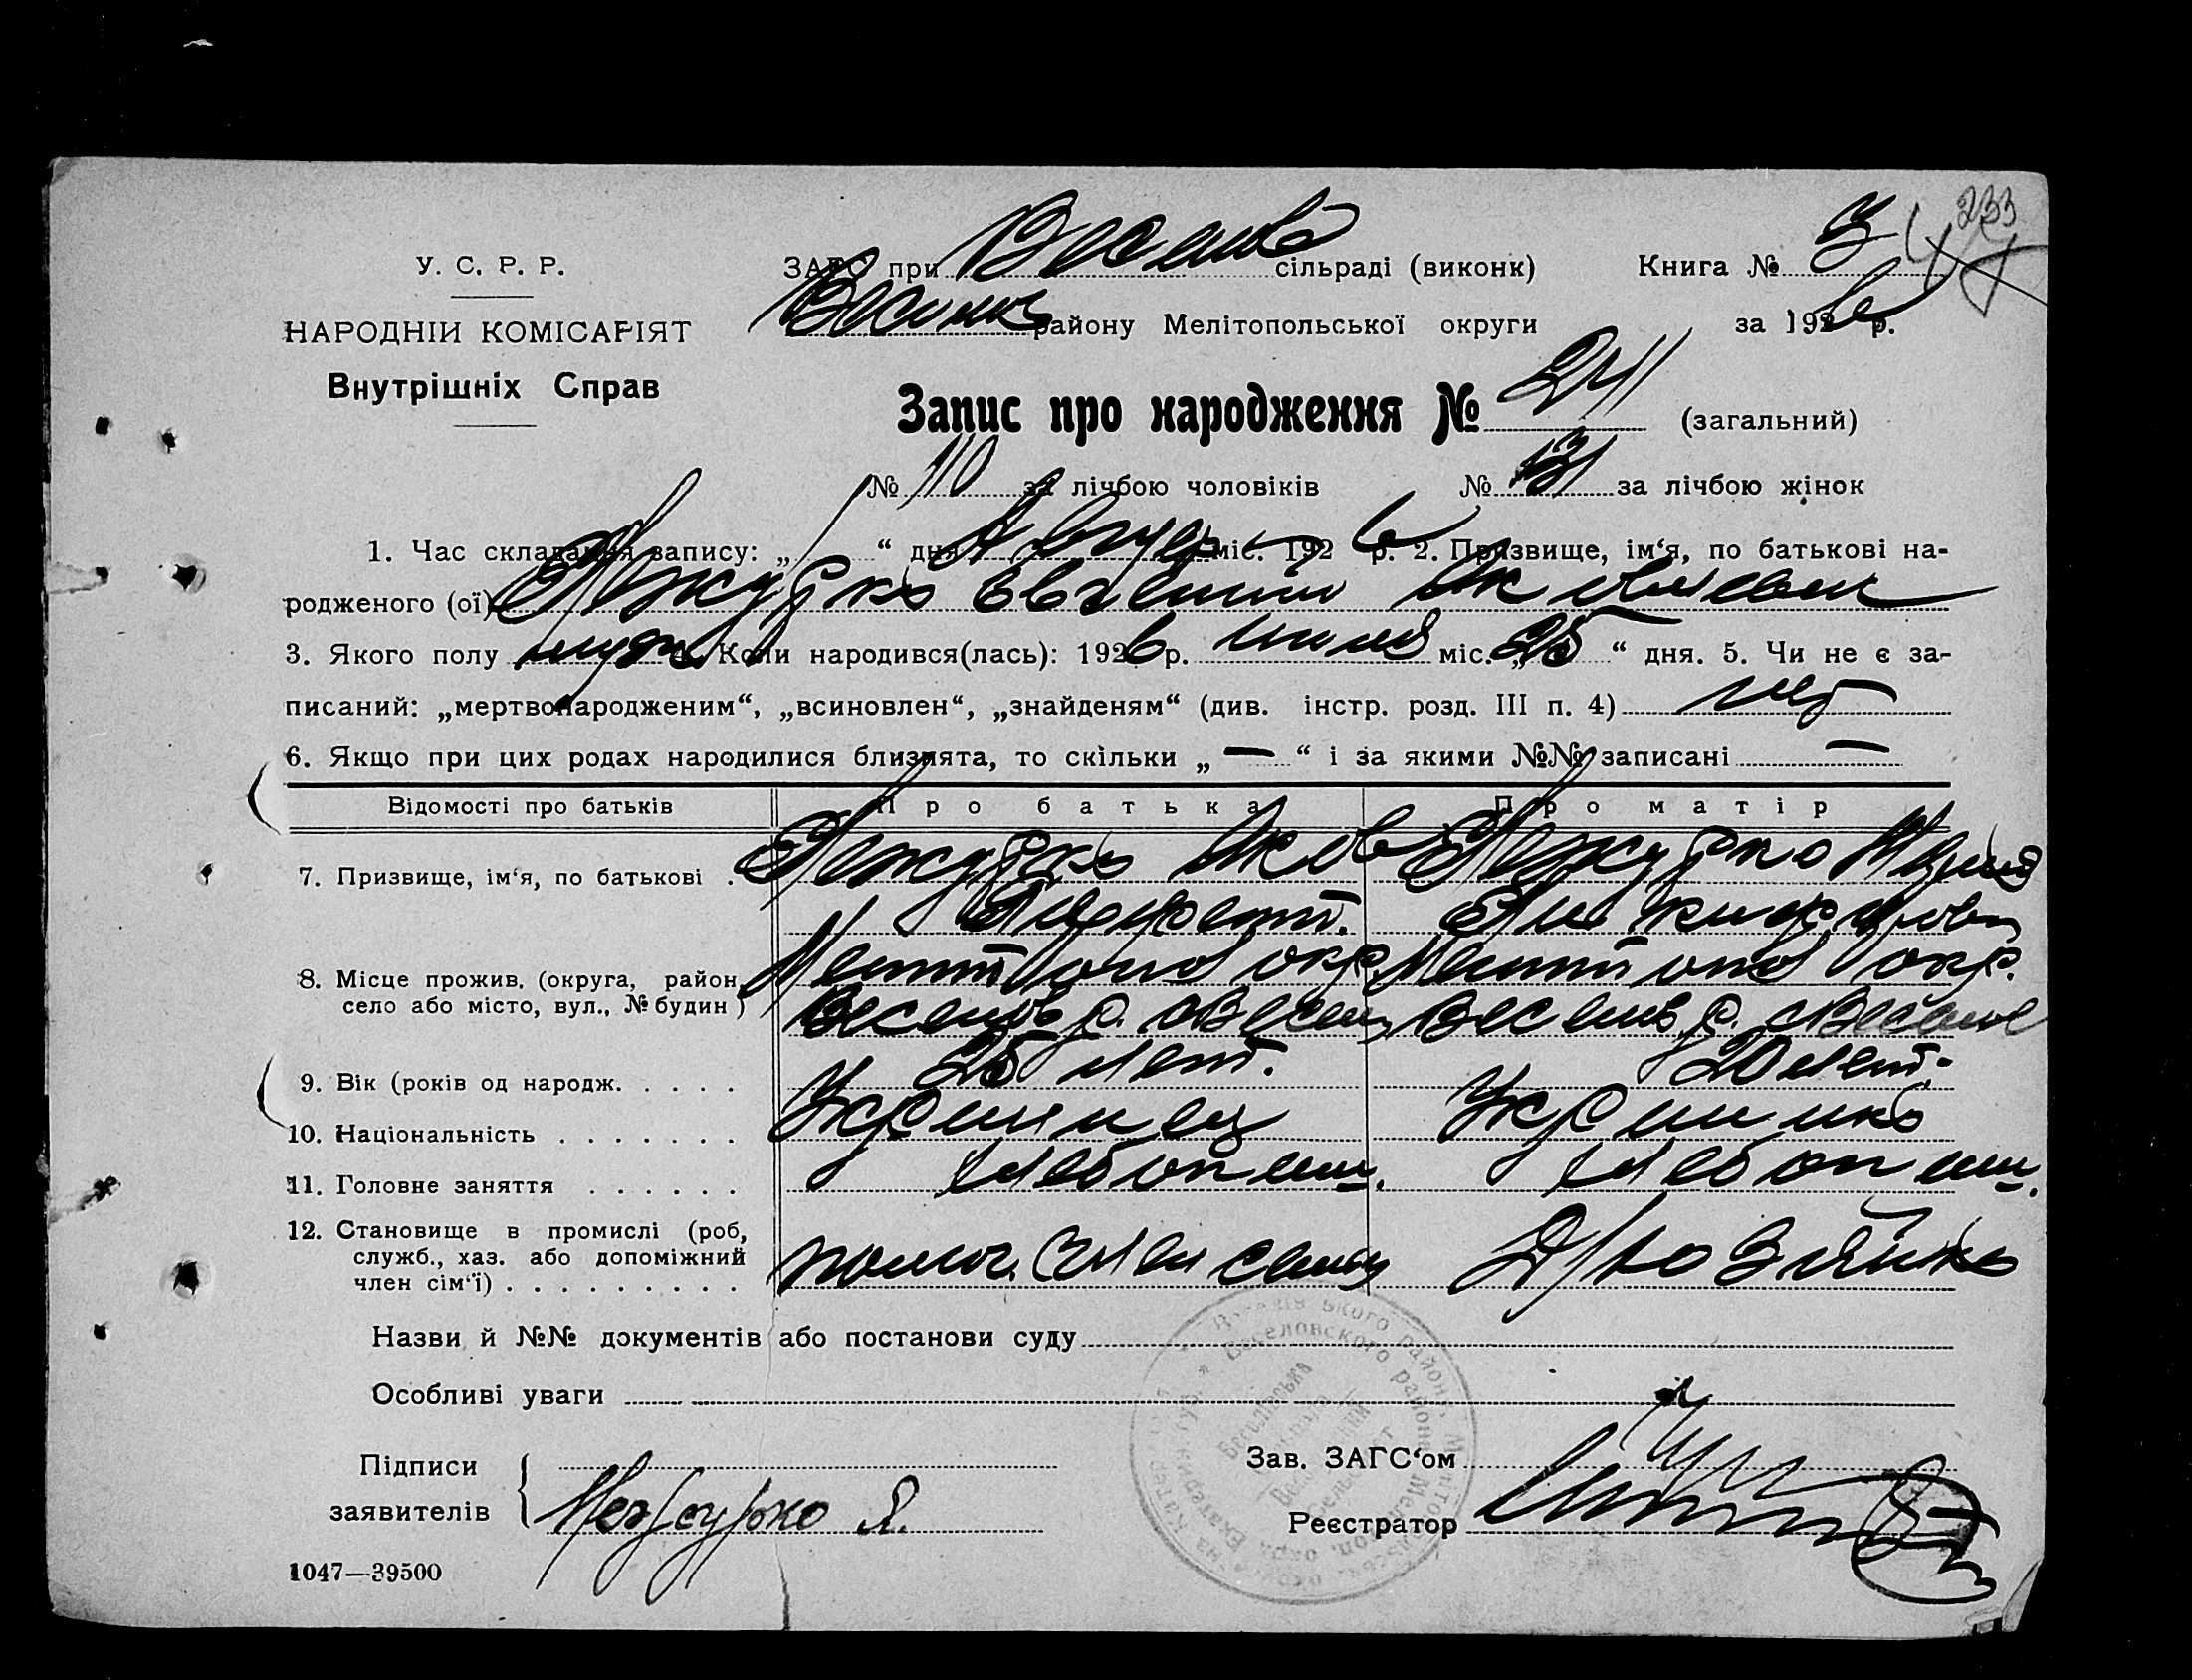 233
У. С. Р. Р.
НАРОДНІЙ КОМІСАРІЯТ
Внутрішніх Справ
ЗАГС при сільраді (виконк) Книга № 3
району Мелітопольської округи за 1926 р.
Запис про народження № 241 (загальний)
№ 110 за лічбою чоловіків № 131 за лічбою жінок
1. Час складання запису: „ 1 “ дня Август міс. 1926 р. 2. Призвище, ім‘я, по батькові на-
родженого (ої) Евгений Яковлевич
3. Якого полу муж. 4. Коли народився(лась): 1926 р. міс. „ 25 “ дня. 5. Чи не є за-
писаний: „мертвонародженим“, „всиновлен“, „знайденям“ (див. інстр. розд. III п. 4) нет
6. Якщо при цих родах народилися близнята, то скільки „ — “ і за якими №№ записані —
Відомості про батьків Про батька Про матір
7. Призвище, ім‘я, по батькові . Яков Мария
8. Місце прожив. (округа, район, Мелитопол окр. Мелитопол окр.
село або місто, вул., № будин) Веселов р. Веселов р. с Веселое
9. Вік (років од народж. . . . . 25 лет. 20 лет.
10. Національність . . . . . . . Украинец Украинка
11. Головне заняття . . . . . . хлебопаш. хлебопаш.
12. Становище в промислі (роб,
служб., хаз. або допоміжний
член сім‘ї) . . . . . . . . . помог. член семьи хозяйка
Назви й №№ документів або постанови суду
Особливі уваги
Підписи
заявителів Я.
Зав. ЗАГС‘ом
Реєстратор
1047—39500